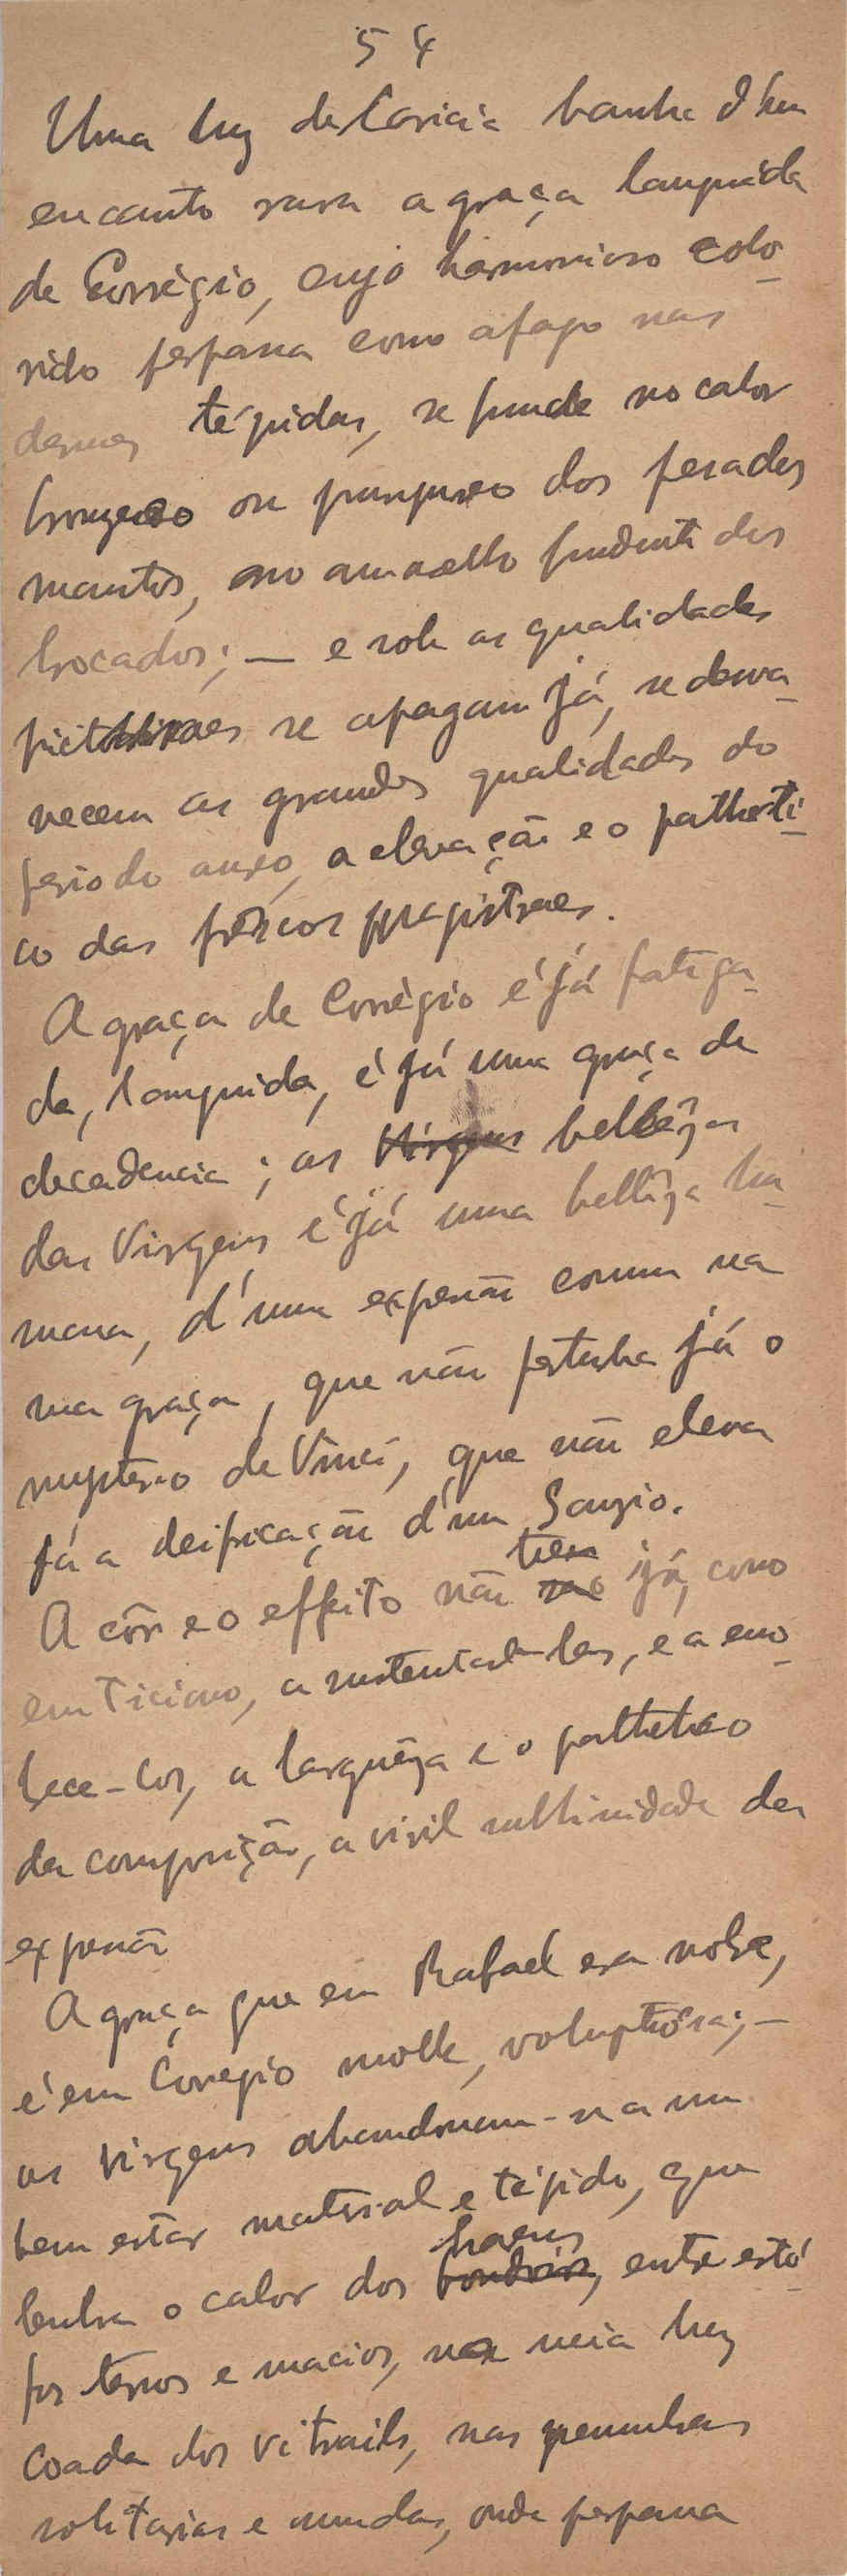 54
Uma luz de Caricia banha d'hum
encanto raro a graça languida
de Corrègio, cujo harmonioso colo-
rido perpassa como afago nas
tépidas, se funde no calor
ou purpureo dos pesados
mantos, no amarello fundente dos
brocados; — e sob as qualidades
se apagam já, se desva-
necem as grandes qualidades do
periodo aureo, a elevação e o patheti-
co das magistraes.
A graça de Corrègio é já fatiga-
da, languida, é já uma graça de
decadencia; as Virgens bellêza
das Virgens é já uma bellêza hu-
mana, d'uma expressão comum na
sua graça, que não perturba já o
mysterio de Vinci, que não eleva
já a deificação d'um Sanzio.
A côr e o effeito não teem já, como
em Ticiano, a sustental-las, e a eno-
brece-los, a larguêza e o pathetico
da composição, a viril sublimidade da
expressão
A graça que em Rafael era nobre,
é em Corregio molle, voluptuósa; —
as Virgens abandonam-na num
bem estar material e tépido, que
lembra o calor dos harens, entre estó-
fos ternos e macios, na meia luz
coada dos vitrails, nas penumbras
solitarias e mudas, onde perpassa